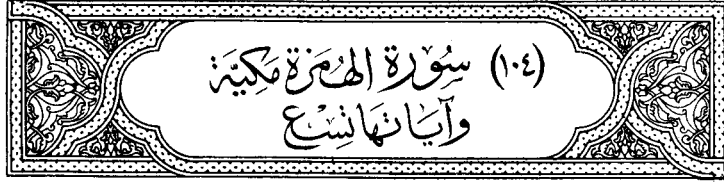 (١٠٤) سُوْرَة الهُمَزة مَكيَّة
وَآيَاتهَا تِسْع